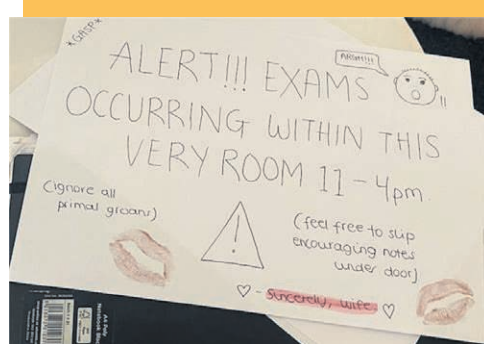 *GASP*
ARGH!!!
ALERT!!! EXAMS
OCCURRING WITHIN THIS
VERY ROOM 11-4pm
(ignore all
primal groans)
!
(feel free to slip
encouraging notes
under door)
♡ - Sincerely, wife ♡
A4 Poly